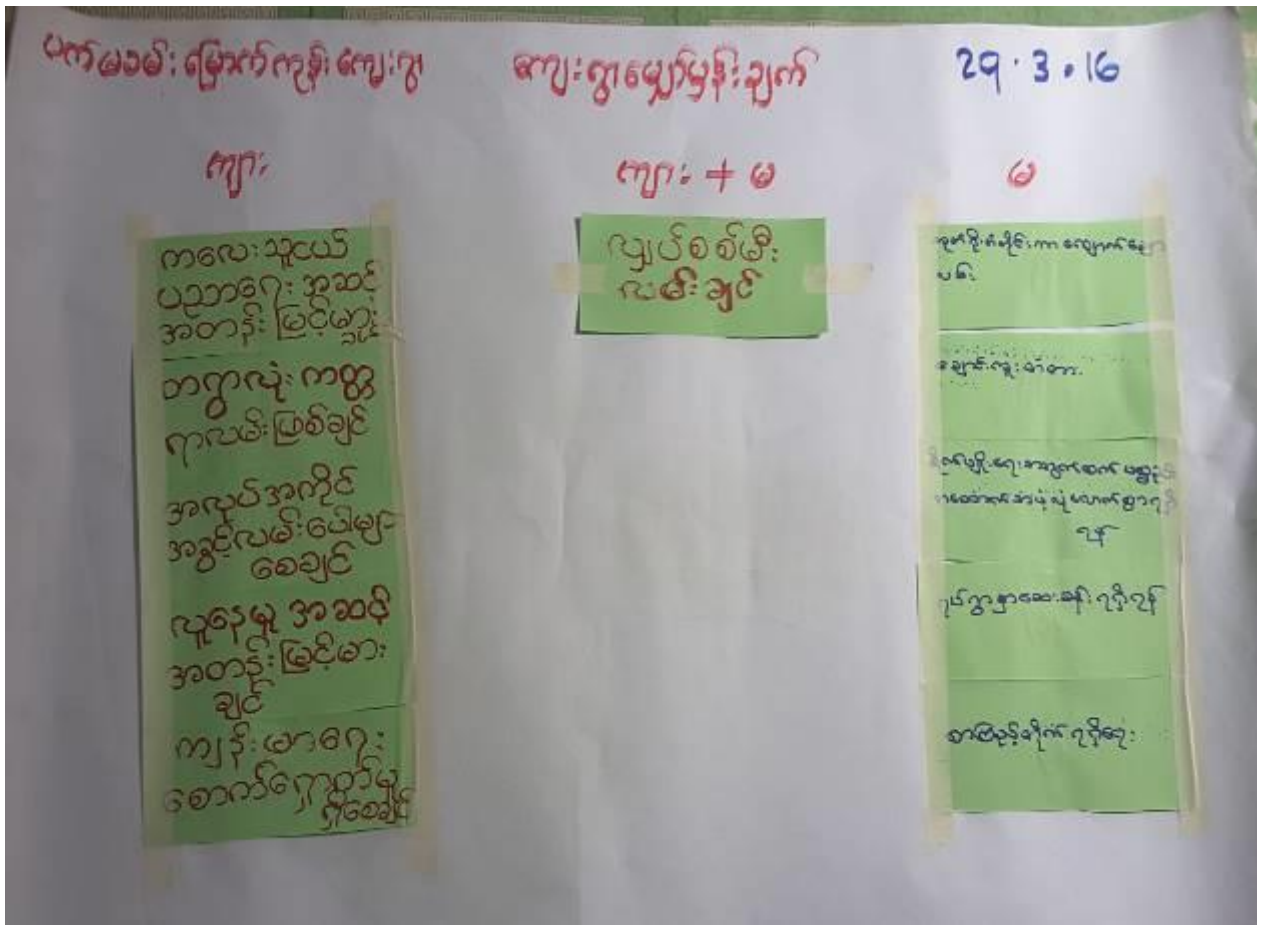 ပက်မခမ်းမြောက်ကုန်းကျေးရွာ
ကျေးရွာမျှော်မှန်းချက်
29.3.16
ကျား
ကျား + မ
မ
ကလေးသူငယ်
ပညာရေးအဆင့်
အတန်းမြင့်မားမှု
တရွာလုံးကတ္တ
ရာလမ်းဖြစ်ချင်
အလုပ်အကိုင်
အခွင့်လမ်းပေါများ
စေချင်
လူနေမှုအဆင့်
အတန်းမြင့်မား
ချင်
ကျန်းမာရေး
စောက်ရှောက်မှု
ရှိစေချင်
လျှပ်စစ်မီး
လမ်းချင်
ချောင်းကူးတံတား
ရပ်ရွာမှာဆေးခန်းရရှိရန်
စာကြည့်တိုက်ရရှိရေး